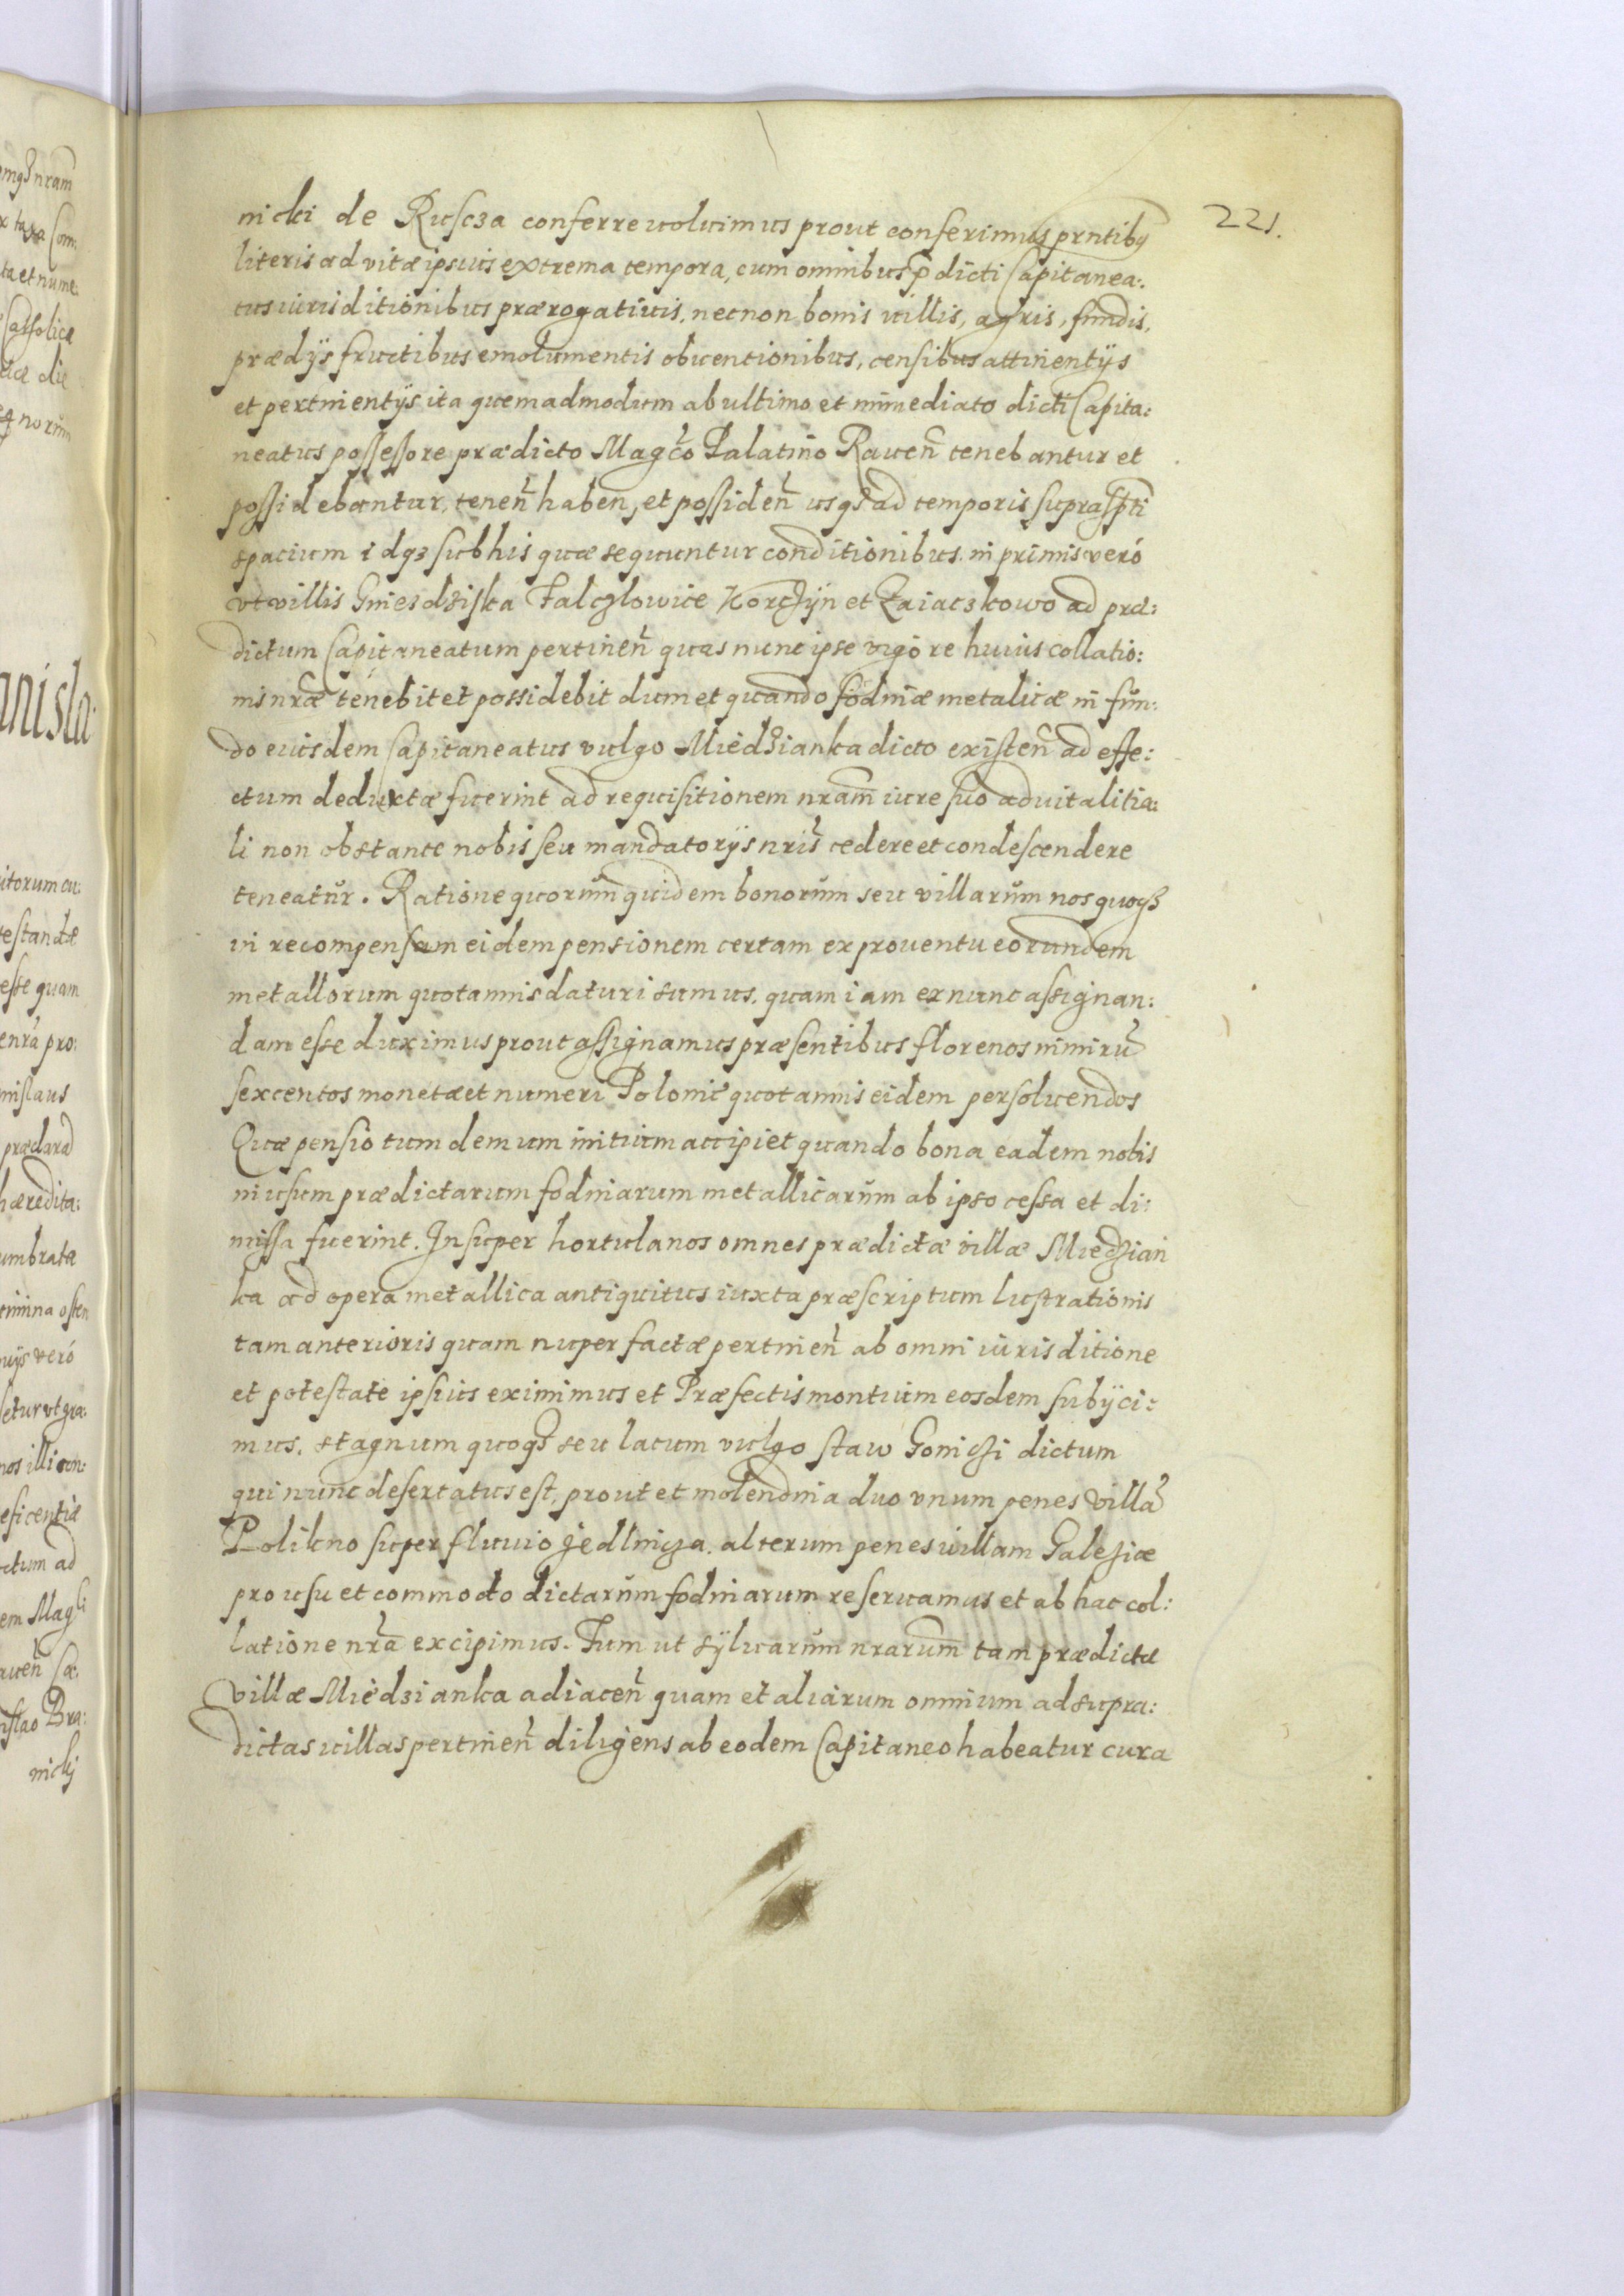 221.
nicki de Ruscza conferre uoluimus prout conferimus prntibꝰ
literis ad vitæ ipsius extrema tempora, cum omnibus p̄dicti Capitanea:
tus iurisditionibus prærogatiuis, necnon bonis uillis, agris, fundis,
prædijs fructibus emolumentis obuentionibus, censibus attinentijs
et pertinentijs ita quemadmodum ab ultimo et immediato dicti Capita:
neatus possessore prædicto Magco Palatino Raueñ tenebantur et
possidebantur, teneñ haben, et possideñ usqȝ ad temporis suprasp̄ti
spacium idqȝ sub his quæ sequuntur conditionibus. in primis veró
vt villis Gniesdziska Falczlowice Korczÿn et Zaiaczkowo ad præ:
dictum Capitaneatum pertineñ quas nunc ipse vigore huius collatio:
nis nræ tenebit et possidebit dum et quando fodinæ metalicæ in fun:
do eiusdem Capitaneatus vulgo Miedzianka dicto existeñ ad effe:
ctum deductæ fuerint ad requisitionem nram iure suo aduitalitia:
li non obstante nobis seu mandatorijs nris cedere et condescendere
teneatur. Ratione quorum quidem bonorum seu villarum nos quoqȝ
in recompensam eidem pensionem certam ex prouentu eorundem
metallorum quotannis daturi sumus, quam iam ex nunc assignan:
dam esse duximus prout assignamus præsentibus florenos nimirū
sexcentos monetæ et numeri Polonic quotannis eidem persoluendos
Quæ pensio tum demum initium accipiet quando bona eadem nobis
in usum prædictarum fodinarum metallicarum ab ipso cessa et di:
missa fuerint. Insuper hortulanos omnes prædictæ villæ Miedzian
ka ad opera metallica antiquitus iuxta præscriptum lustrationis
tam anterioris quam nuper factæ pertineñ ab omni iurisditione
et potestate ipsius eximimus et Præfectis montium eosdem subijci:
mus. stagnum quoqȝ seu lacum vulgo staw Goniczi dictum
qui nunc desertatus est, prout et molendina duo vnum penes villā
Polikno super fluuio Jedlnicza. alterum penes uillam Galeziæ
pro usu et commodo dictarum fodinarum reseruamus et ab hac col:
latione nrã excipimus. Tum ut sÿluarum nrarum tam prædictæ
villæ Miedzianka adiaceñ quam et aliarum omnium ad supra:
dictas uillas pertineñ diligens ab eodem Capitaneo habeatur cura